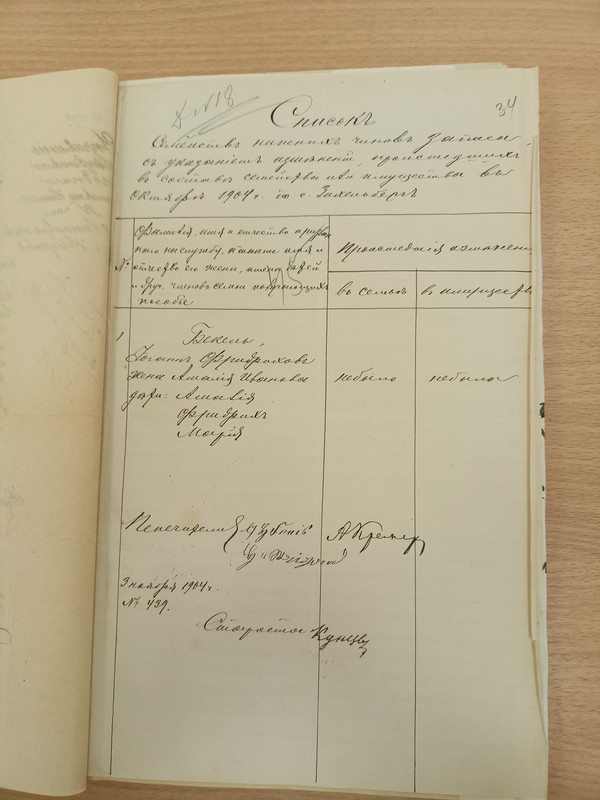 34
Д №18
Списокъ
Семействъ нижнихъ чиновъ запаса
съ указаніемъ измѣненій, происшедшихъ
въ составѣ семействъ или имущества въ
Октябрѣ 1904 г. по с. Гихельбергъ
№
Фамилія, имя и отчество призван
наго на службу, а также имя и
отчество его жены, имена дѣтей
и друг. членовъ семьи получающихъ
пособіе
Происшедшія измѣнені
въ семьѣ
въ имуществѣ
1
Бекель,
Іоганъ Фридриховъ
жена Амалія Иванова
дѣти: Амалія
Фридрихъ
Марія
небыло
небыло
Попечители
А Кремер
3 ноября 1904 г.
№ 439.
Староста